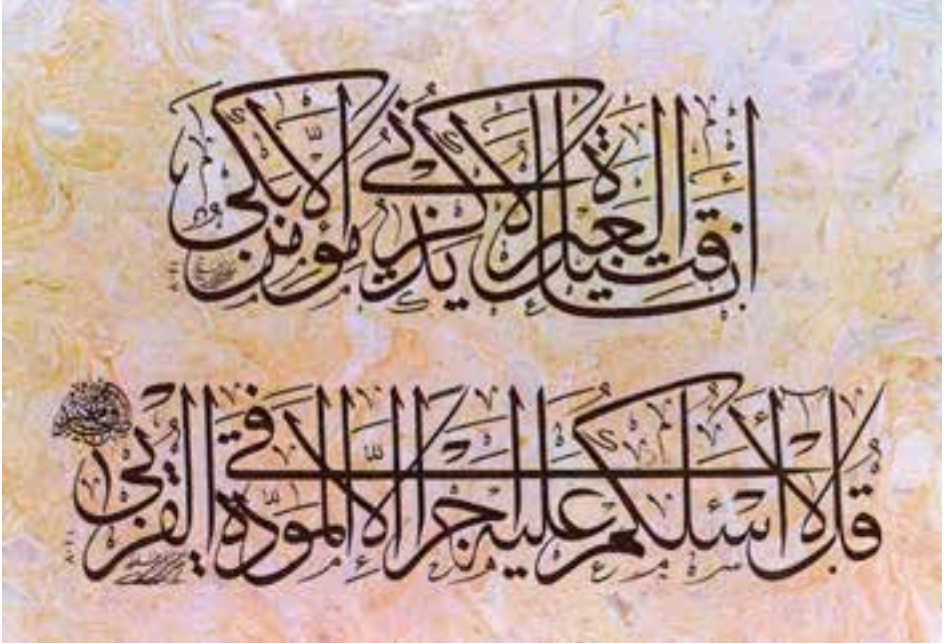 أنا قتيل العبرة لا يذكرني مؤمن إلا بكى
قل لا أسئلكم عليه أجرا إلا المودة في القربى